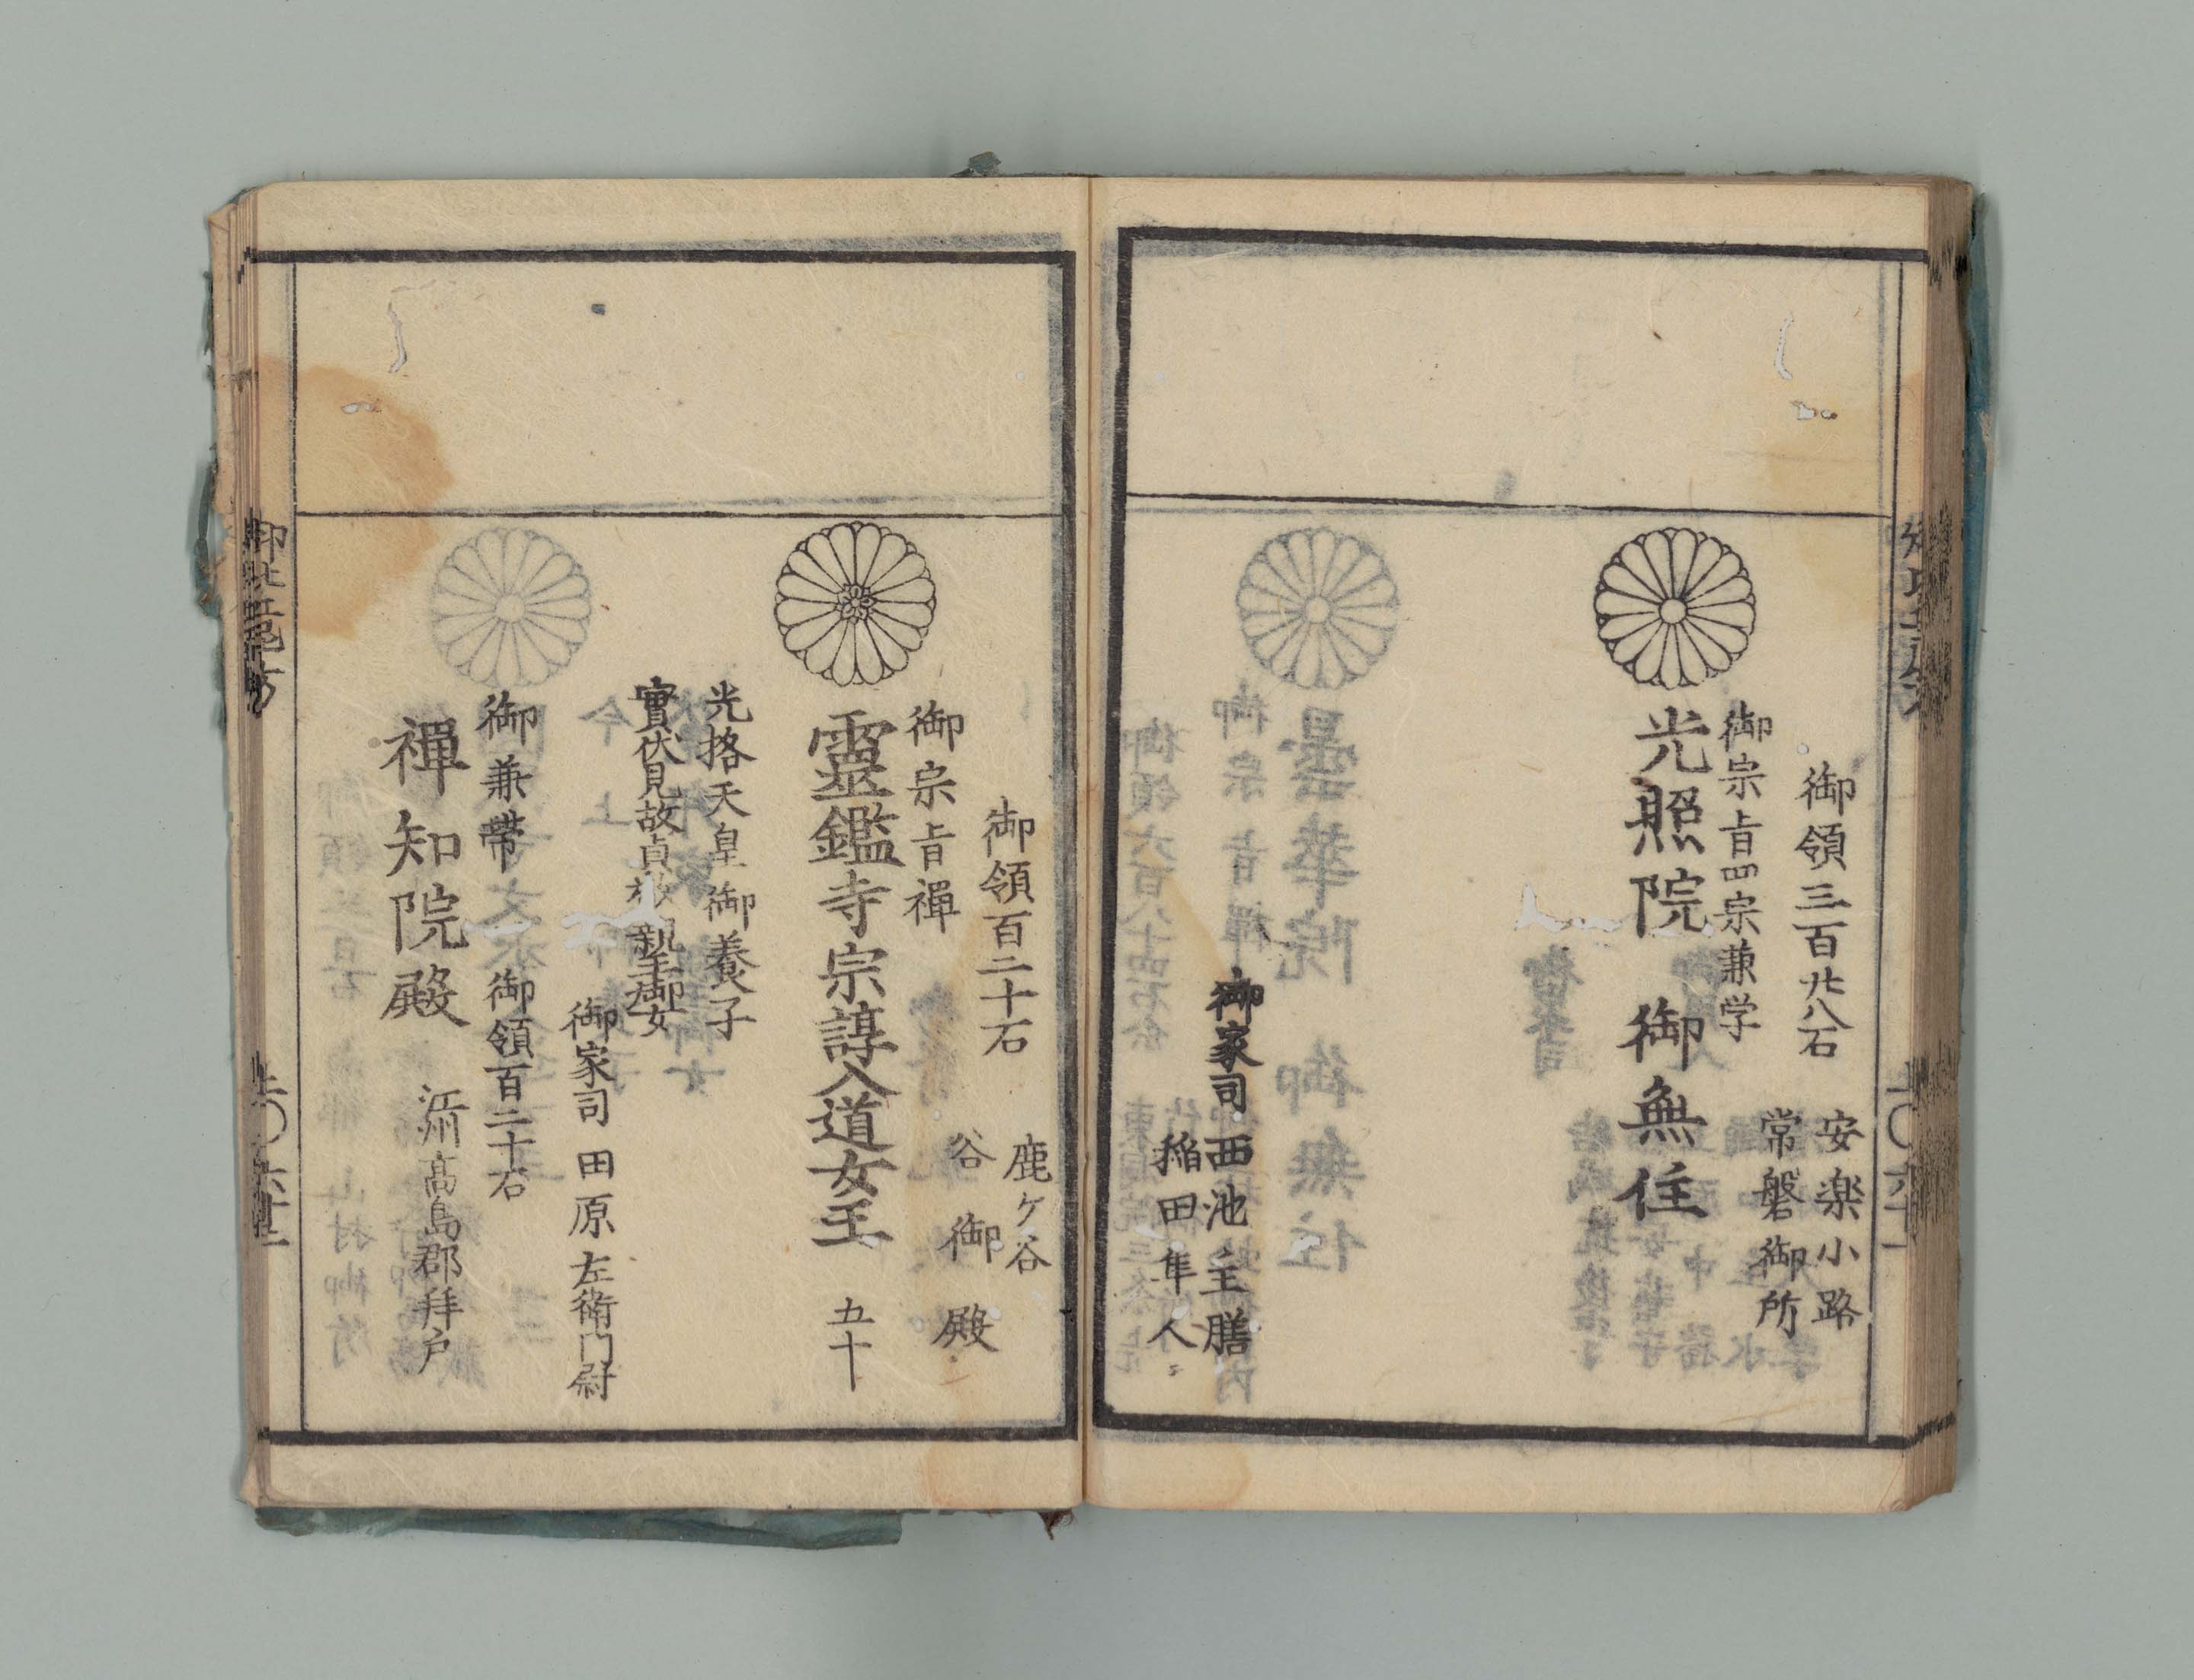 御領三百廿八石
安楽小路
常磐御所
御宗旨四宗兼学
光照院 御無住
御家司 西池主膳
稲田隼人
御領百二十石
鹿ケ谷
谷御殿
御宗旨禅
靈鑑寺宗諄入道女王 五十
光格天皇御養子
實伏見故貞敬親王御女
御家司 田原左衛門尉
御兼帯 御領百二十石
禪知院殿 江州高島郡拜戸